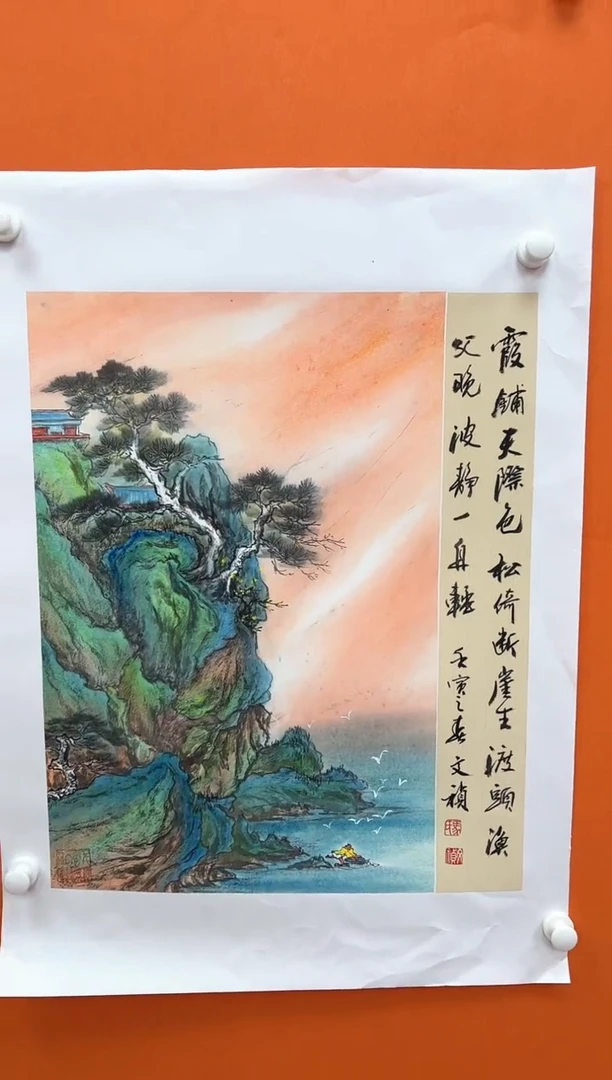 霞鋪天際色松倚斷崖生渡頭漁
父晚波靜一身輕 壬寅之春文禎